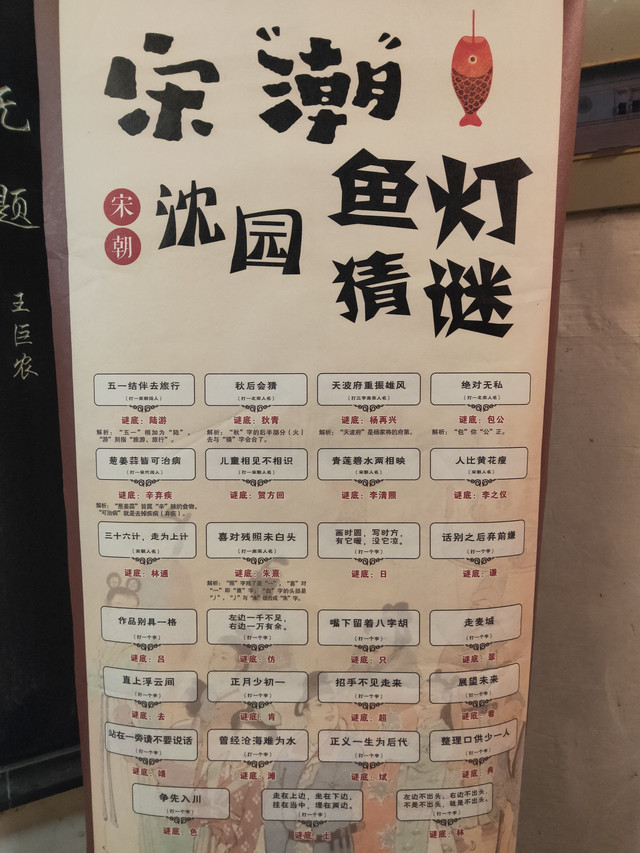 无
题
王巨农
宋“潮”
宋朝
沈园
鱼灯
猜谜
五一结伴去旅行
谜底：陆游
解析：“五一”相加为“陆”，
“游”则指“旅游、旅行”。
秋后会猜
谜底：狄青
解析：“秋”字的后半部分（火）
去与“猜”字会合了。
天波府重振雄风
谜底：杨再兴
解析：“天波府”是杨家将的府第。
绝对无私
谜底：包公
解析：“包”你“公”正。
葱姜蒜皆可治病
谜底：辛弃疾
解析：“葱姜蒜”皆属“辛”辣的食物，
“可治病”就是去掉疾病（弃疾）。
儿童相见不相识
谜底：贺方回
青莲碧水两相映
谜底：李清照
人比黄花瘦
谜底：李之仪
三十六计，走为上计
谜底：林逋
喜对残照未白头
谜底：朱熹
画时圆，写时方，
有它暖，没它凉。
（打一个字）
谜底：日
话别之后弃前嫌
（打一个字）
谜底：谦
作品别具一格
（打一个字）
谜底：吕
左边一千不足，
右边一万有余。
（打一个字）
谜底：仿
嘴下留着八字胡
（打一个字）
谜底：只
走麦城
（打一个字）
谜底：翠
直上浮云间
（打一个字）
谜底：去
正月少初一
（打一个字）
谜底：肯
招手不见走来
（打一个字）
谜底：超
展望未来
（打一个字）
谜底：看
站在一旁请不要说话
（打一个字）
谜底：靖
曾经沧海难为水
（打一个字）
谜底：滩
正义一生为后代
（打一个字）
谜底：斌
整理口供少一人
（打一个字）
谜底：典
争先入川
（打一个字）
谜底：色
走在上边，坐在下边，
挂在当中，埋在两边。
（打一个字）
谜底：土
左边不出头、右边不出头，
不是不出头、就是不出头。
（打一个字）
谜底：林